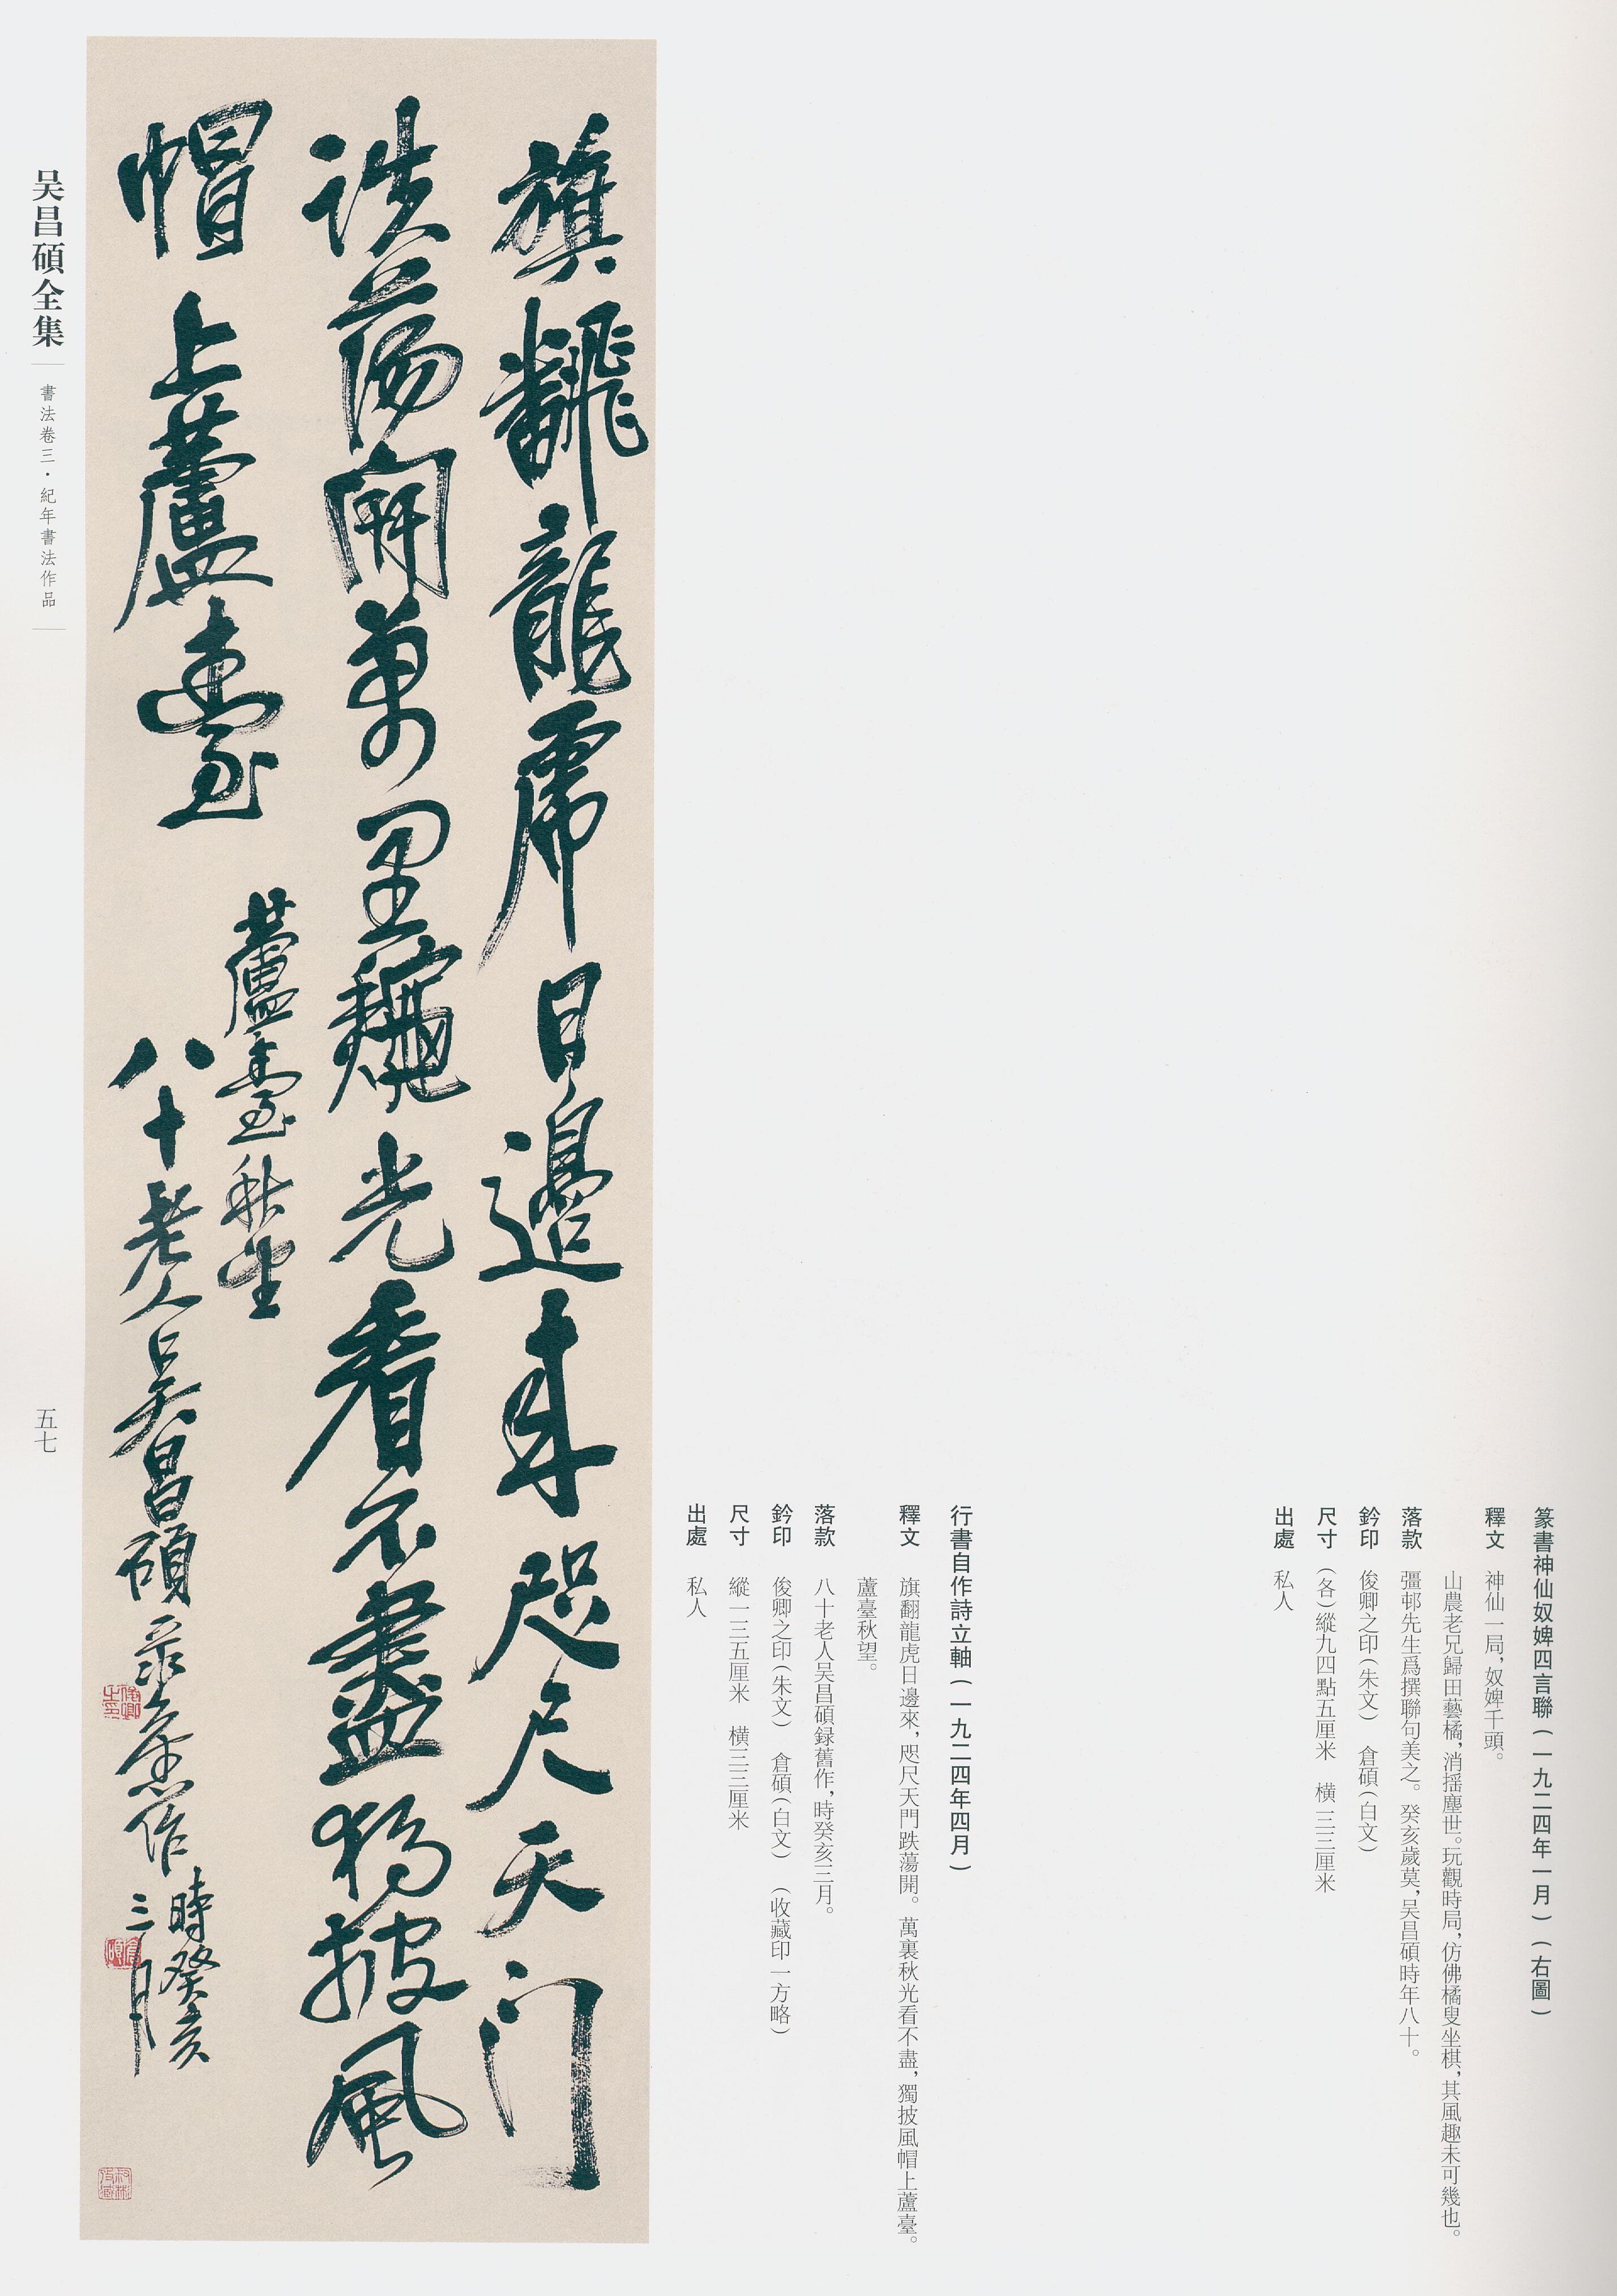 篆書神仙奴婢四言聯(一九二四年一月)(右圖)
釋文 神仙一局,奴婢千頭。
山農老兄歸田藝橘,消摇塵世。玩觀時局,仿佛橘叟坐棋,其風趣未可幾也。
落款 彊邨先生爲撰聯句美之。癸亥歲莫,吴昌碩時年八十。
鈐印 俊卿之印(朱文) 倉碩(白文)
尺寸 (各)縱九四點五厘米 橫二三厘米
出處 私人
行書自作詩立軸(一九二四年四月)
釋文 旗翻龍虎日邊來,咫尺天門跌蕩開。萬裏秋光看不盡,獨披風帽上蘆臺。
蘆臺秋望。
落款 八十老人吴昌碩録舊作,時癸亥三月。
鈐印 俊卿之印(朱文) 倉碩(白文) (收藏印一方略)
尺寸 縱一三五厘米 橫三三厘米
出處 私人
旗翻龍虎日邊来咫尺天门
詄蕩開萬里龝光看不盡獨披風
帽上蘆臺
蘆臺秋望
八十老人吴昌碩录舊作
時癸亥
三月
俊卿之印
倉碩
吴昌碩全集
書法卷三·紀年書法作品
五七